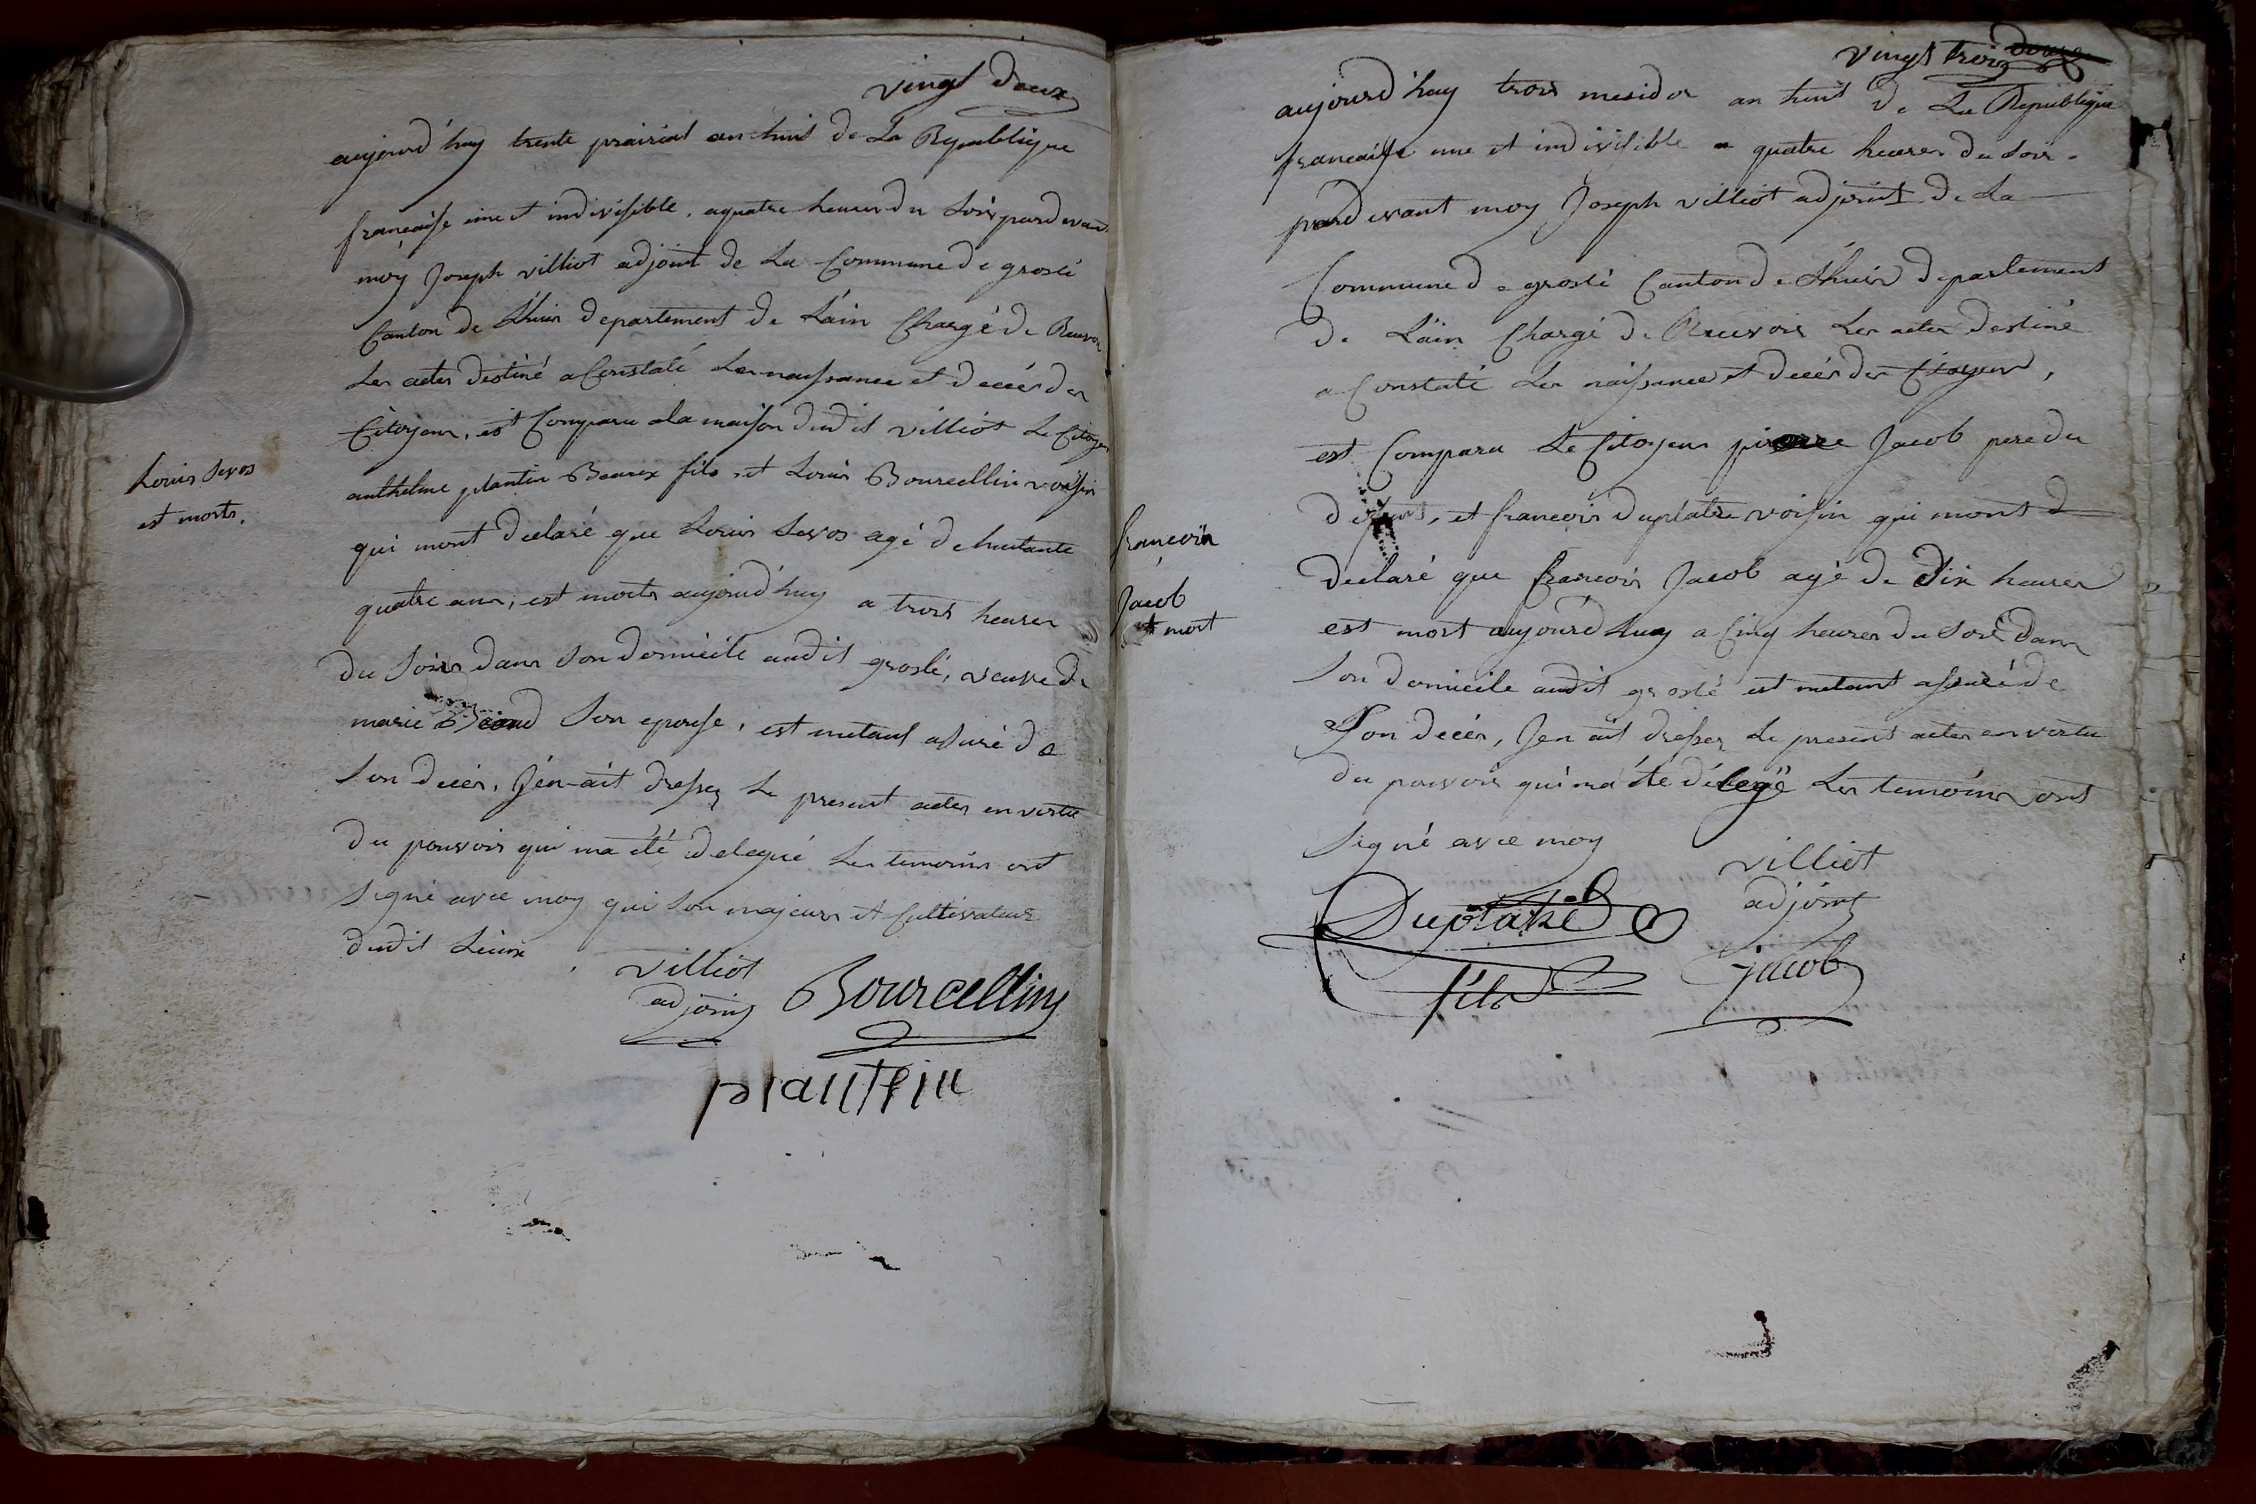 vingt deux
aujourd'huy trente prairial an huit de La Republique
francaise une et indivisible, a quatre heures du Soir pardevant
moy Joseph villiot adjoint de La Commune de groslé
Canton de Lhuis departement de L'ain Chargé de Recevoir
Les actes destiné a Constaté Les naissance et decés des
Citoyens, est Comparu a la maison dudit villiot Le Citoyen
anthelme plantin Beaux fils, et Louis Bourcellin voisin
qui mont declaré que Louis Sevos agé de huitante
quatre ans, est morts aujourd'huy a trois heures
du Soirs dans Son domicile audit groslé, veuve de
marie Son epouse, est metant assuré de
Son decés, J'en-ait dresser Le present actes en vertu
du pouvoir qui ma été delegué Les temoins ont
Signé avec moy qui Son majeurs et Cultivateur
dudit Lieux
Louis Sevos
est morts.
villiot
adjoint
Bourcellin
plantin
vingt trois
aujourd'huy trois mesidor an huit de La Republique
francaise une et indivisible a quatre heures du Soir
pardevant moy Joseph villiot adjoint de La
Commune de groslé Canton de Lhuis departement
de L'ain Chargé de Recevoir Les actes destiné
a Constaté Les naissance et decés des Citoyens,
est Comparu Le Citoyens pierre Jacob pere du
defunt, et francois duplatre voisin qui mont d
declaré que francois Jacob agé de dix heures
est mort aujourd'huy a Cinq heures du Soir dans
Son domicile audit groslé est metant assuré de
Son decés, J'en ait dresser Le present actes en vertu
du pouvoir qui ma été délegé Les temoins ont
Signé avec moy
francois
Jacob
est mort
villiot
adjoint
Duplatre
fils
jacob